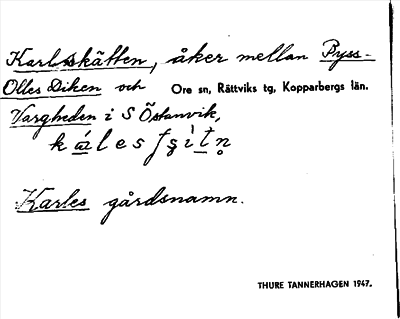 Karlsskätten, åker mellan Pyss-
Olles Diken och Ore sn, Rättviks tg, Kopparbergs län.
Vargheden i S Östanvik,
Karles gårdsnamn.
THURE TANNERHAGEN 1947.